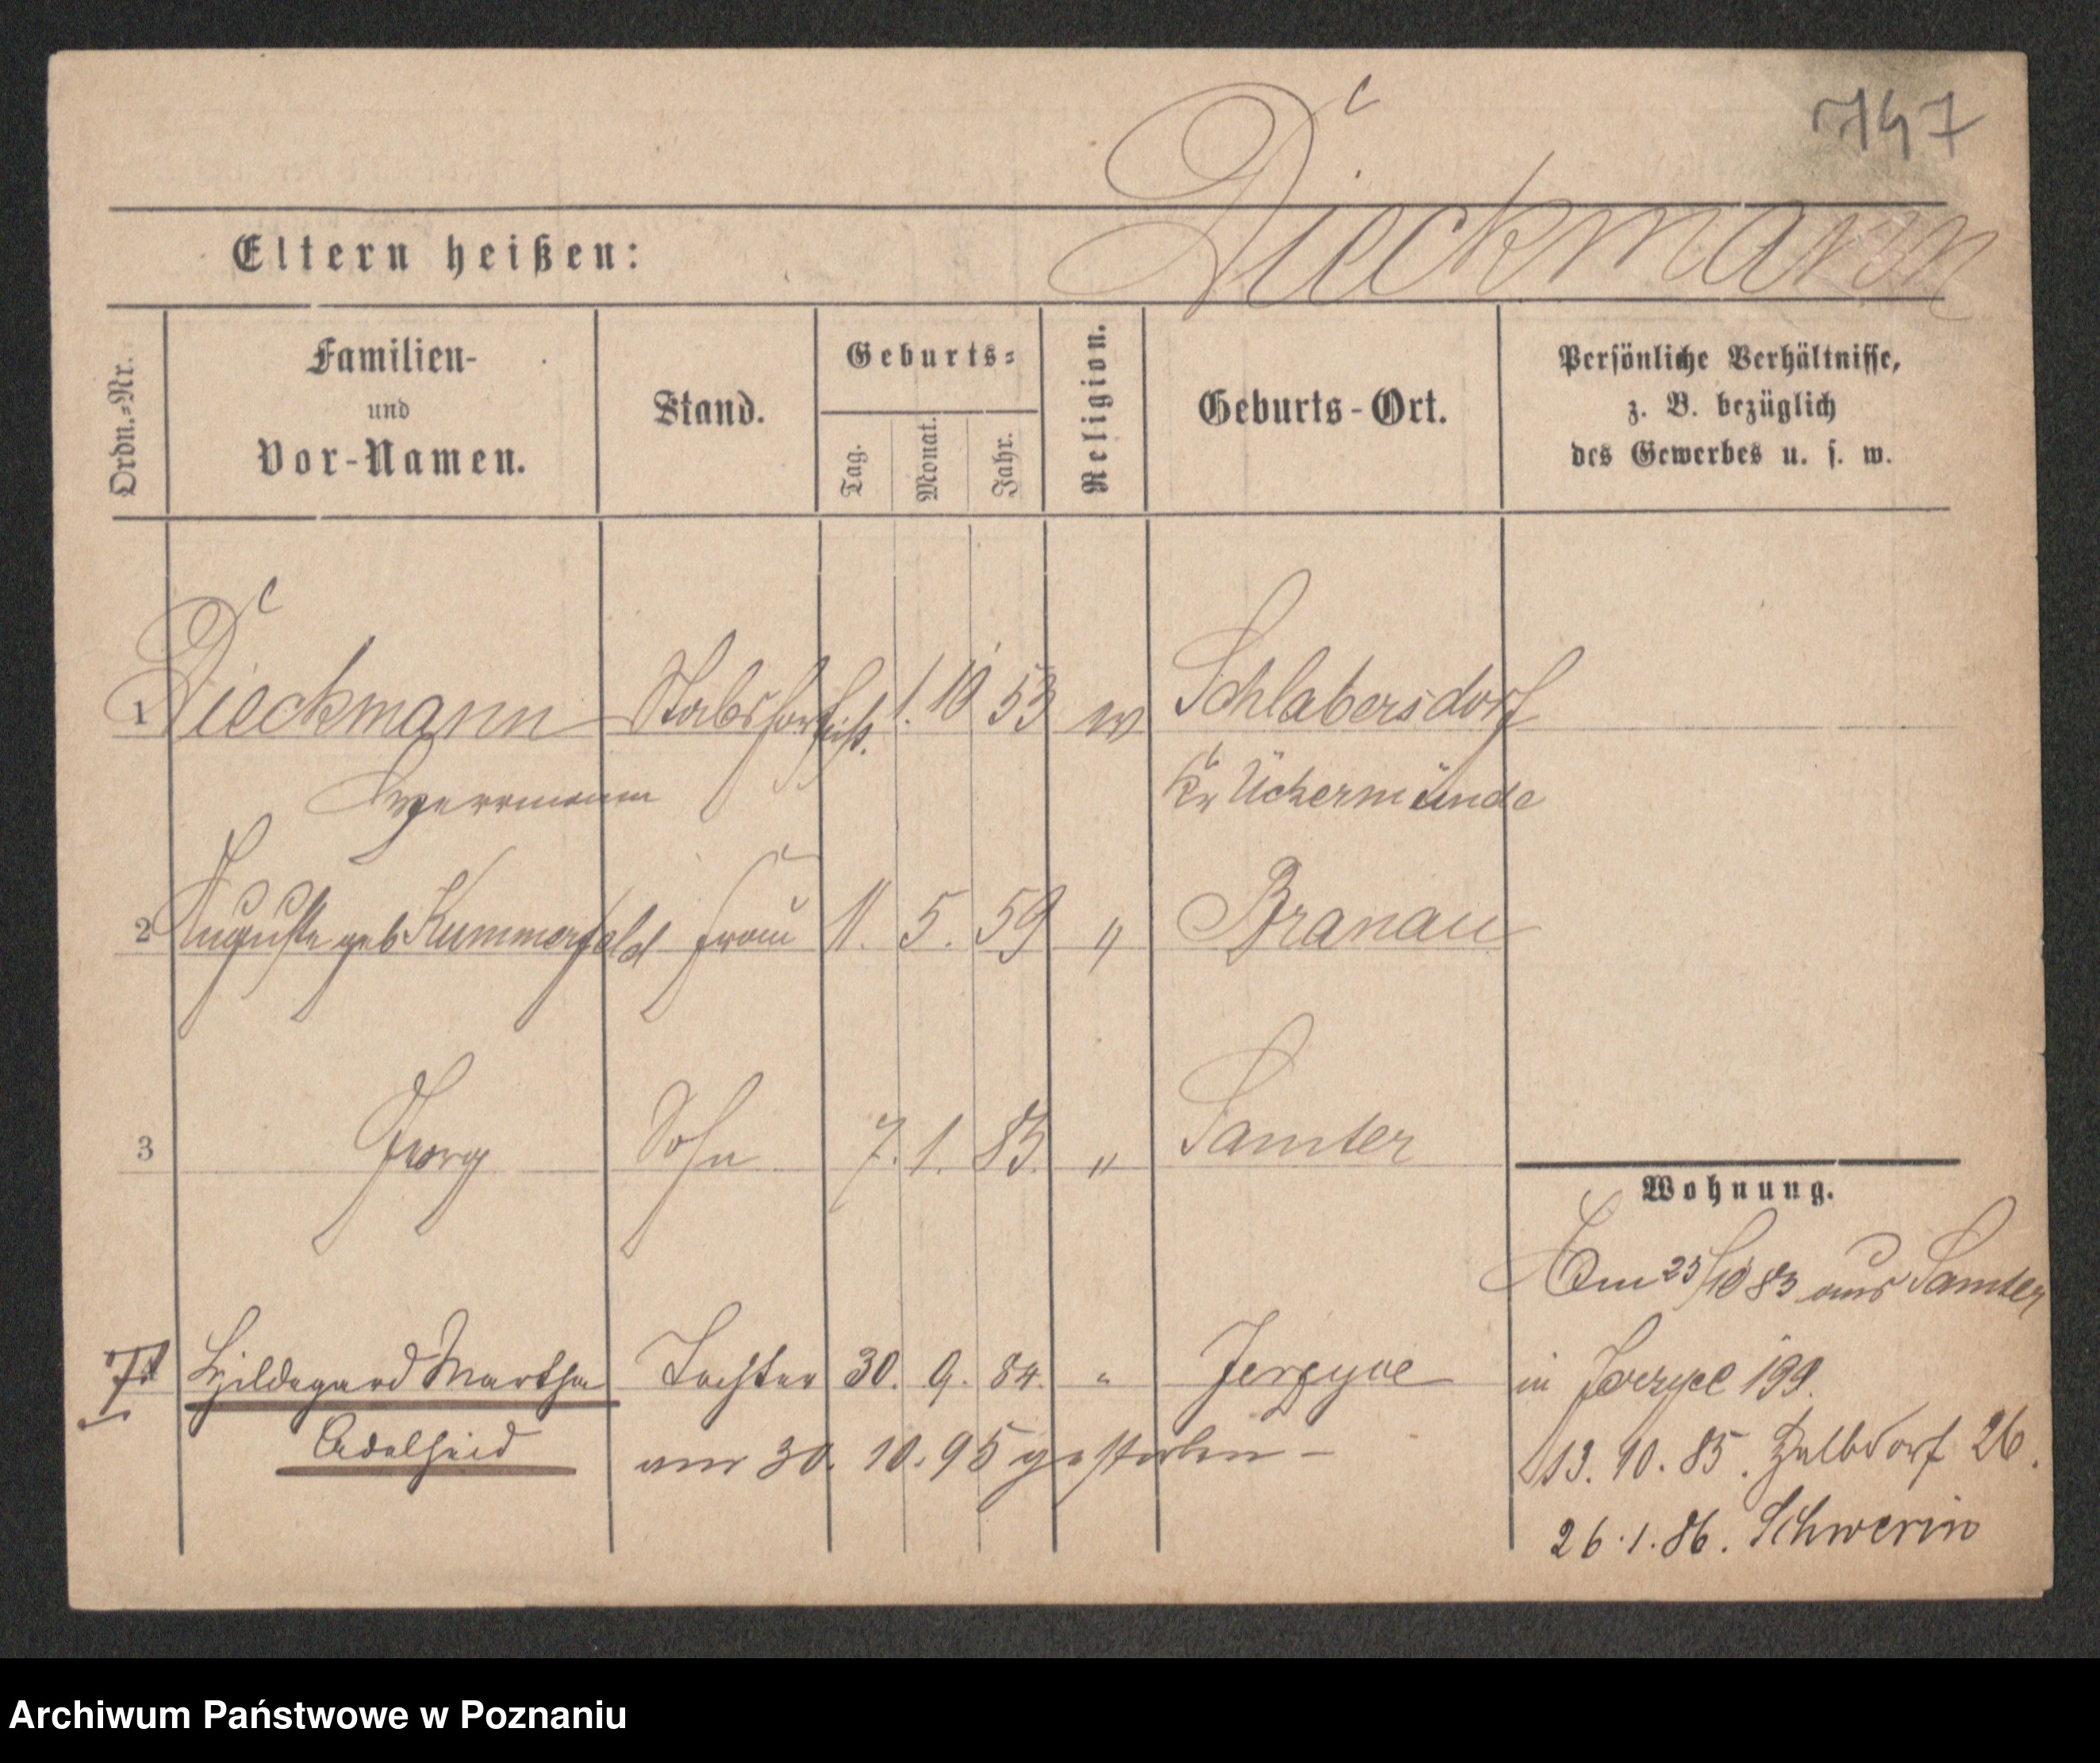 747
Dieckmann
Eltern heißen:
Ordn.-Nr.
Familien-
und
Vor-Namen.
Stand.
Geburts-
Tag. Monat. Jahr.
Religion.
Geburts-Ort.
Persönliche Verhältnisse,
z. B. bezüglich
des Gewerbes u. s. w.
1 Dieckmann 1. 10 53 ev Schlabersdorf
Kr Ückermünde
2 Auguste geb Kummerfeld Frau 11. 5. 59 " Branau
3 Georg Sohn 7. 1. 83. " Samter
Wohnung.
Am 25/10 83 aus Samter
Hildegard Martha Tochter 30. 9. 84. " Jerzyce
in Jerzyce 199.
Adelheid am 30. 10. 95 gestorben –
13. 10. 85. Halbdorf 26.
26.1.86. Schwerin
Archiwum Państwowe w Poznaniu